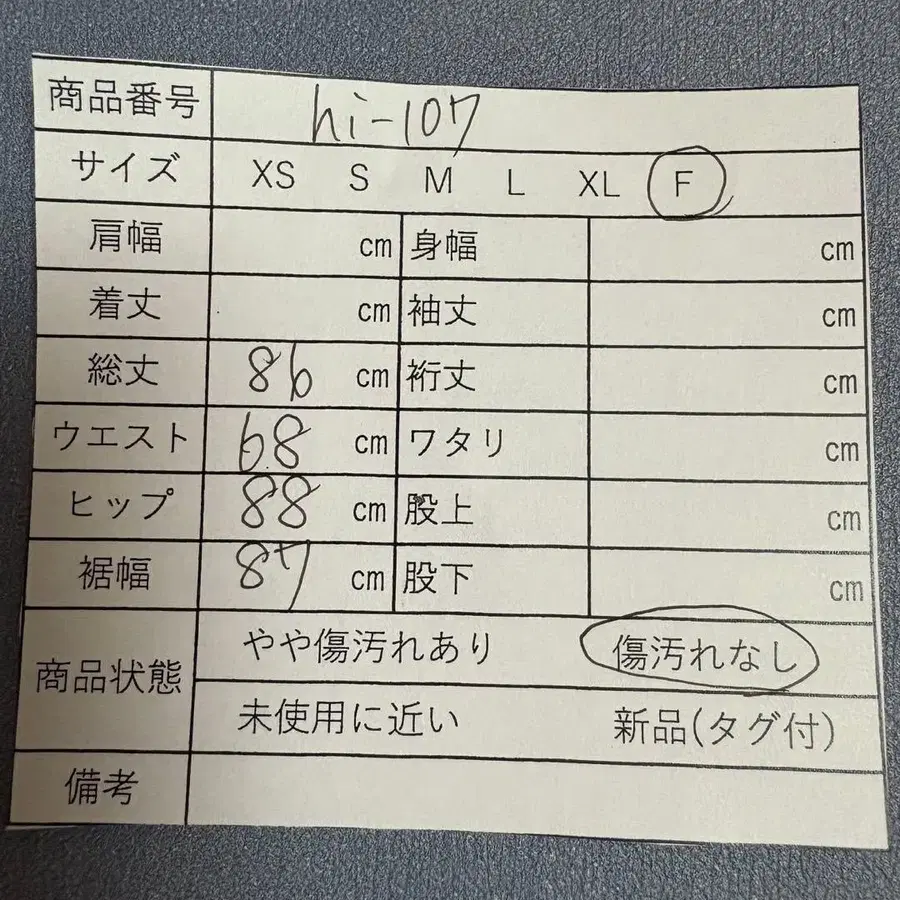 商品番号 hi-107
サイズ XS S M L XL F
肩幅 cm 身幅 cm
着丈 cm 袖丈 cm
総丈 86 cm 裄丈 cm
ウエスト 68 cm ワタリ cm
ヒップ 88 cm 股上 cm
裾幅 87 cm 股下 cm
商品状態 やや傷汚れあり 傷汚れなし
未使用に近い 新品(タグ付)
備考